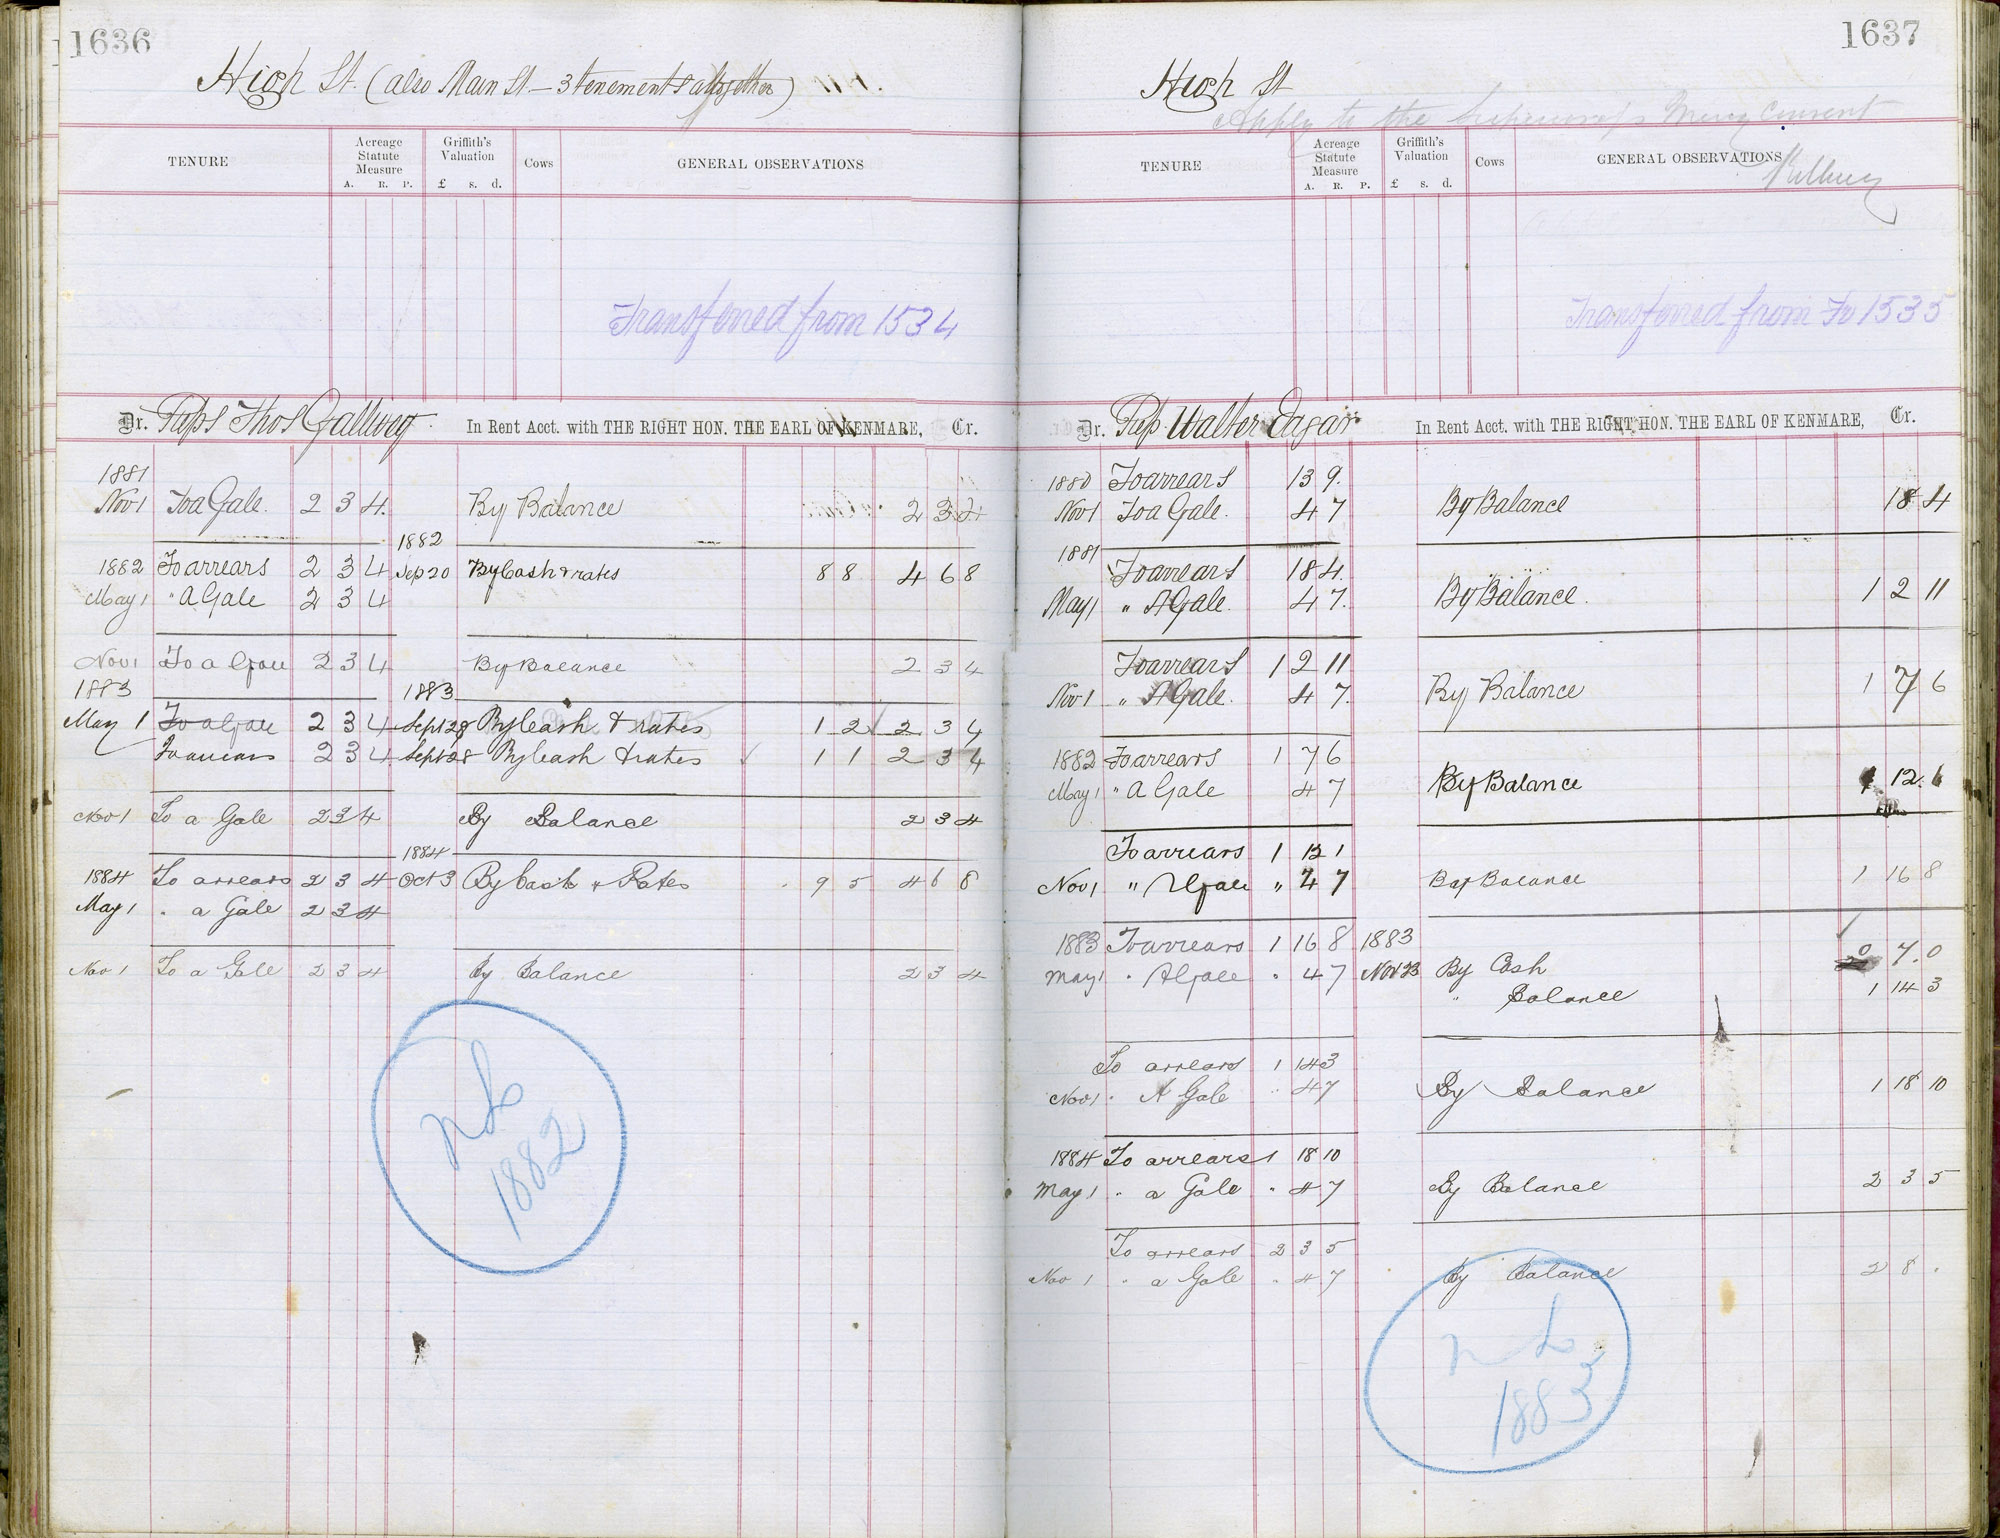 1636
High St. (also Main St. — 3 tenements altogether)
TENURE
Acreage Statute Measure
A. R. P.
Griffith's Valuation
£ s. d.
Cows
GENERAL OBSERVATIONS
Transferred from 1534
Dr. Reps Thos Gallwey In Rent Acct. with THE RIGHT HON. THE EARL OF KENMARE, Cr.
1881
Nov 1 To a Gale. 2 3 4 By Balance 2 3 4
1882
1882 To arrears 2 3 4 Sep 20 By Cash & rates 8 8 4 6 8
May 1 " A Gale 2 3 4
Nov 1 To a Gale 2 3 4 By Balance 2 3 4
1883 1883
May 1 To a Gale 2 3 4 Sept 28 By Cash & rates 1 2 2 3 4
To arrears 2 3 4 Sept 28 By Cash & rates 1 1 2 3 4
Nov 1 To a Gale 2 3 4 By Balance 2 3 4
1884
1884 To arrears 2 3 4 Oct 3 By Cash & Rates 9 5 4 6 8
May 1 " a Gale 2 3 4
Nov 1 To a Gale 2 3 4 By Balance 2 3 4
1882
1637
High St
Apply to the
TENURE
Acreage Statute Measure
A. R. P.
Griffith's Valuation
£ s. d.
Cows
GENERAL OBSERVATIONS
Transferred from Fo 1535
Dr. Rep Walter Eagar In Rent Acct. with THE RIGHT HON. THE EARL OF KENMARE, Cr.
1880 To arrears 13 9
Nov 1 To a Gale. 4 7 By Balance 18 4
1881
To arrears 18 4
May 1 " A Gale. 4 7 By Balance. 1 2 11
To arrears 1 2 11
Nov 1 " A Gale. 4 7 By Balance 1 7 6
1882 To arrears 1 7 6
May 1 " A Gale 4 7 By Balance 1 12. 1
To arrears 1 12 1
Nov 1 " A Gale " 4 7 By Balance 1 16 8
1883 To arrears 1 16 8 1883
May 1 " A Gale " 4 7 Nov 23 By Cash 0 7. 0
" Balance 1 14 3
To arrears 1 14 3
Nov 1 " A Gale " 4 7 By Balance 1 18 10
1884 To arrears 1 18 10
May 1 " a Gale " 4 7 By Balance 2 3 5
To arrears 2 3 5
Nov 1 " a Gale " 4 7 By Balance 2 8 .
1883